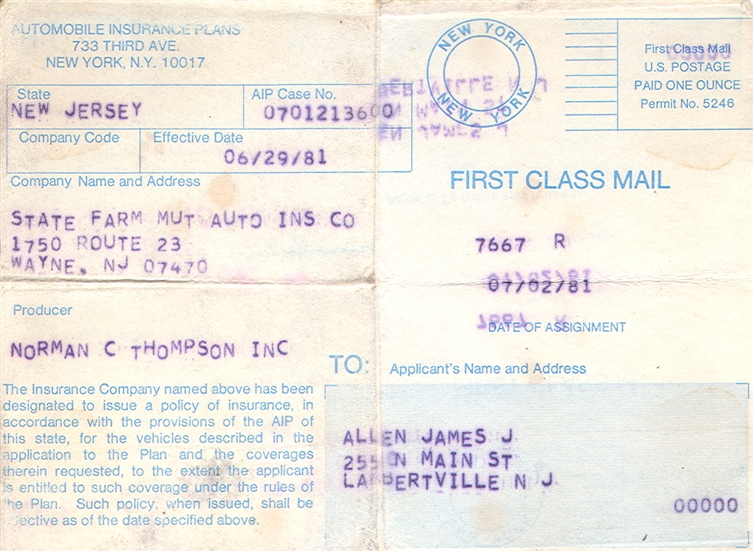 AUTOMOBILE INSURANCE PLANS
733 THIRD AVE.
NEW YORK, N.Y. 10017
State
NEW JERSEY
AIP Case No.
0701213600
Company Code
Effective Date
06/29/81
Company Name and Address
STATE FARM MUT AUTO INS CO
1750 ROUTE 23
WAYNE, NJ 07470
Producer
NORMAN C THOMPSON INC
The Insurance Company named above has been
designated to issue a policy of insurance, in
accordance with the provisions of the AIP of
this state, for the vehicles described in the
application to the Plan and the coverages
therein requested, to the extent the applicant
is entitled to such coverage under the rules of
the Plan. Such policy, when issued, shall be
effective as of the date specified above.
NEW YORK
NEW YORK
First Class Mail
U.S. POSTAGE
PAID ONE OUNCE
Permit No. 5246
FIRST CLASS MAIL
7667 R
07/02/81
DATE OF ASSIGNMENT
TO:
Applicant's Name and Address
ALLEN JAMES J
N MAIN ST
LAMBERTVILLE N J
00000